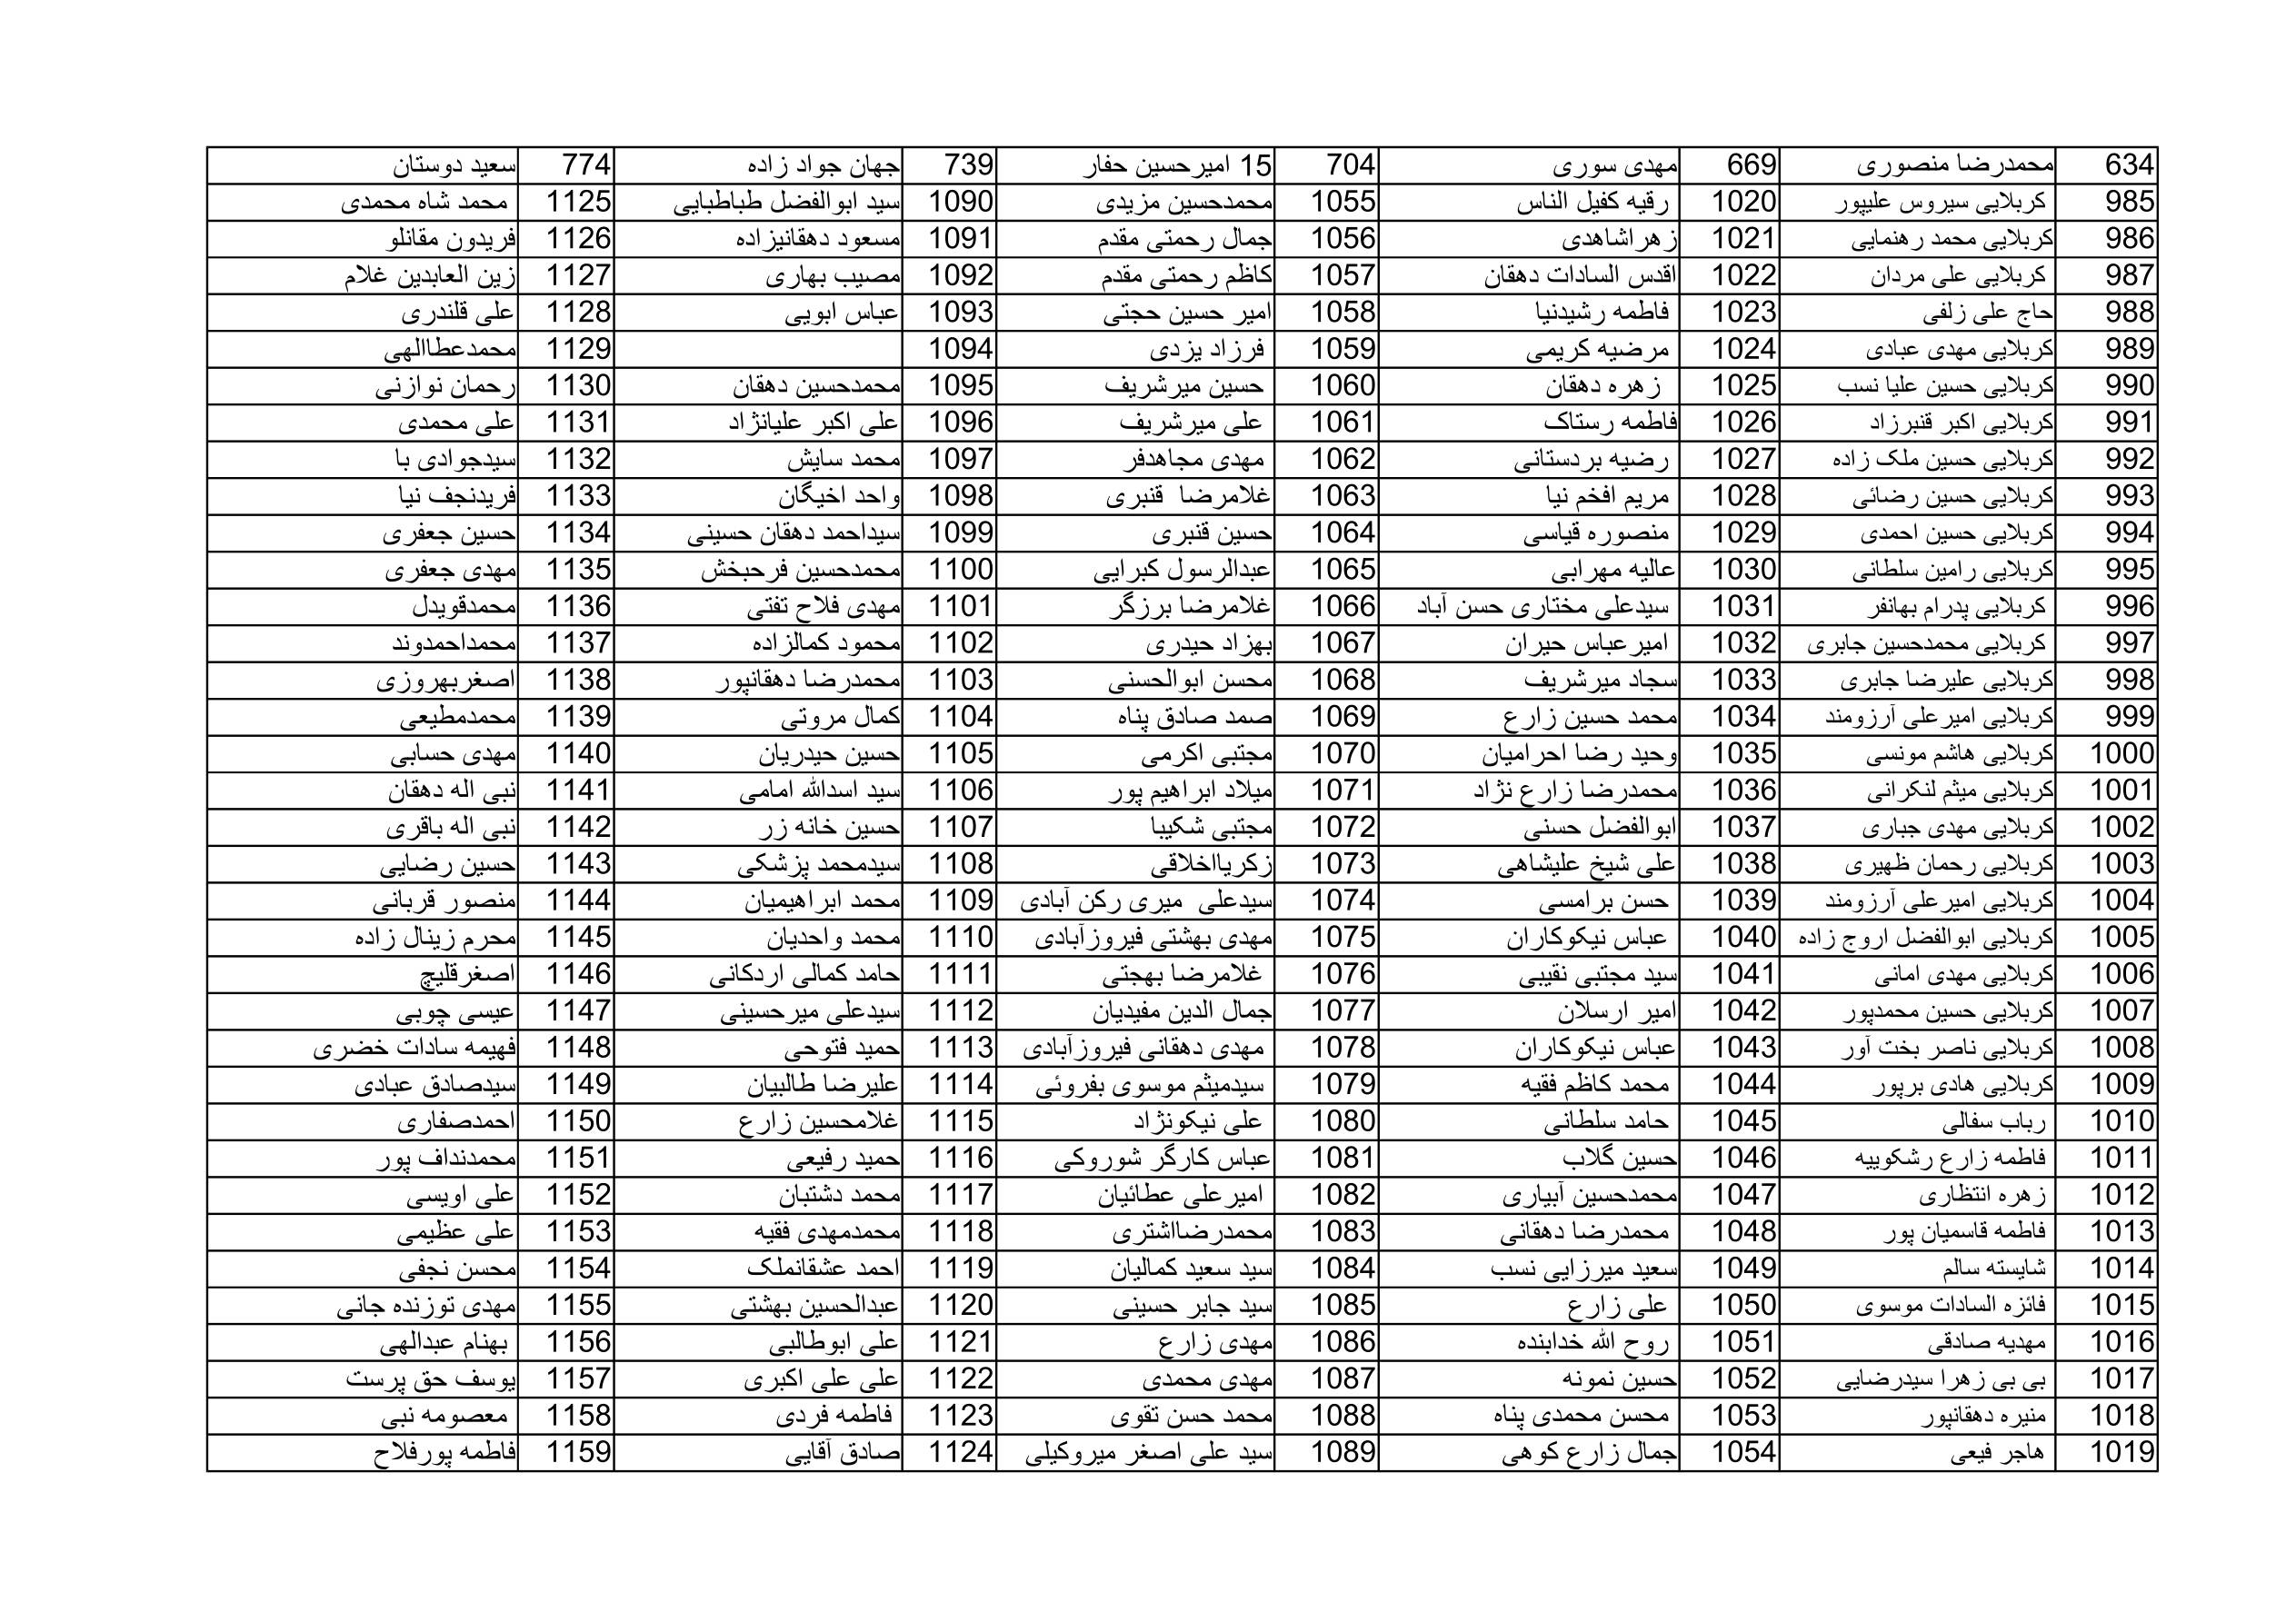 634 محمدرضا منصوری 669 مهدی سوری 704 15 امیرحسین حفار 739 جهان جواد زاده 774 سعید دوستان
985 کربلایی سیروس علیپور 1020 رقیه کفیل الناس 1055 محمدحسین مزیدی 1090 سید ابوالفضل طباطبایی 1125 محمد شاه محمدی
986 کربلایی محمد رهنمایی 1021 زهراشاهدی 1056 جمال رحمتی مقدم 1091 مسعود دهقانیزاده 1126 فریدون مقانلو
987 کربلایی علی مردان 1022 اقدس السادات دهقان 1057 کاظم رحمتی مقدم 1092 مصیب بهاری 1127 زین العابدین غلام
988 حاج علی زلفی 1023 فاطمه رشیدنیا 1058 امیر حسین حجتی 1093 عباس ابویی 1128 علی قلندری
989 کربلایی مهدی عبادی 1024 مرضیه کریمی 1059 فرزاد یزدی 1094 1129 محمدعطاالهی
990 کربلایی حسین علیا نسب 1025 زهره دهقان 1060 حسین میرشریف 1095 محمدحسین دهقان 1130 رحمان نوازنی
991 کربلایی اکبر قنبرزاد 1026 فاطمه رستاک 1061 علی میرشریف 1096 علی اکبر علیانژاد 1131 علی محمدی
992 کربلایی حسین ملک زاده 1027 رضیه بردستانی 1062 مهدی مجاهدفر 1097 محمد سایش 1132 سیدجوادی با
993 کربلایی حسین رضائی 1028 مریم افخم نیا 1063 غلامرضا قنبری 1098 واحد اخیگان 1133 فریدنجف نیا
994 کربلایی حسین احمدی 1029 منصوره قیاسی 1064 حسین قنبری 1099 سیداحمد دهقان حسینی 1134 حسین جعفری
995 کربلایی رامین سلطانی 1030 عالیه مهرابی 1065 عبدالرسول کبرایی 1100 محمدحسین فرحبخش 1135 مهدی جعفری
996 کربلایی پدرام بهانفر 1031 سیدعلی مختاری حسن آباد 1066 غلامرضا برزگر 1101 مهدی فلاح تفتی 1136 محمدقویدل
997 کربلایی محمدحسین جابری 1032 امیرعباس حیران 1067 بهزاد حیدری 1102 محمود کمالزاده 1137 محمداحمدوند
998 کربلایی علیرضا جابری 1033 سجاد میرشریف 1068 محسن ابوالحسنی 1103 محمدرضا دهقانپور 1138 اصغربهروزی
999 کربلایی امیرعلی آرزومند 1034 محمد حسین زارع 1069 صمد صادق پناه 1104 کمال مروتی 1139 محمدمطیعی
1000 کربلایی هاشم مونسی 1035 وحید رضا احرامیان 1070 مجتبی اکرمی 1105 حسین حیدریان 1140 مهدی حسابی
1001 کربلایی میثم لنکرانی 1036 محمدرضا زارع نژاد 1071 میلاد ابراهیم پور 1106 سید اسدالله امامی 1141 نبی اله دهقان
1002 کربلایی مهدی جباری 1037 ابوالفضل حسنی 1072 مجتبی شکیبا 1107 حسین خانه زر 1142 نبی اله باقری
1003 کربلایی رحمان ظهیری 1038 علی شیخ علیشاهی 1073 زکریااخلاقی 1108 سیدمحمد پزشکی 1143 حسین رضایی
1004 کربلایی امیرعلی آرزومند 1039 حسن برامسی 1074 سیدعلی میری رکن آبادی 1109 محمد ابراهیمیان 1144 منصور قربانی
1005 کربلایی ابوالفضل اروج زاده 1040 عباس نیکوکاران 1075 مهدی بهشتی فیروزآبادی 1110 محمد واحدیان 1145 محرم زینال زاده
1006 کربلایی مهدی امانی 1041 سید مجتبی نقیبی 1076 غلامرضا بهجتی 1111 حامد کمالی اردکانی 1146 اصغرقلیچ
1007 کربلایی حسین محمدپور 1042 امیر ارسلان 1077 جمال الدین مفیدیان 1112 سیدعلی میرحسینی 1147 عیسی چوبی
1008 کربلایی ناصر بخت آور 1043 عباس نیکوکاران 1078 مهدی دهقانی فیروزآبادی 1113 حمید فتوحی 1148 فهیمه سادات خضری
1009 کربلایی هادی برپور 1044 محمد کاظم فقیه 1079 سیدمیثم موسوی بفروئی 1114 علیرضا طالبیان 1149 سیدصادق عبادی
1010 رباب سفالی 1045 حامد سلطانی 1080 علی نیکونژاد 1115 غلامحسین زارع 1150 احمدصفاری
1011 فاطمه زارع رشکوییه 1046 حسین گلاب 1081 عباس کارگر شوروکی 1116 حمید رفیعی 1151 محمدنداف پور
1012 زهره انتظاری 1047 محمدحسین آبیاری 1082 امیرعلی عطائیان 1117 محمد دشتبان 1152 علی اویسی
1013 فاطمه قاسمیان پور 1048 محمدرضا دهقانی 1083 محمدرضااشتری 1118 محمدمهدی فقیه 1153 علی عظیمی
1014 شایسته سالم 1049 سعید میرزایی نسب 1084 سید سعید کمالیان 1119 احمد عشقانملک 1154 محسن نجفی
1015 فائزه السادات موسوی 1050 علی زارع 1085 سید جابر حسینی 1120 عبدالحسین بهشتی 1155 مهدی توزنده جانی
1016 مهدیه صادقی 1051 روح الله خدابنده 1086 مهدی زارع 1121 علی ابوطالبی 1156 بهنام عبدالهی
1017 بی بی زهرا سیدرضایی 1052 حسین نمونه 1087 مهدی محمدی 1122 علی علی اکبری 1157 یوسف حق پرست
1018 منیره دهقانپور 1053 محسن محمدی پناه 1088 محمد حسن تقوی 1123 فاطمه فردی 1158 معصومه نبی
1019 هاجر فیعی 1054 جمال زارع کوهی 1089 سید علی اصغر میروکیلی 1124 صادق آقایی 1159 فاطمه پورفلاح